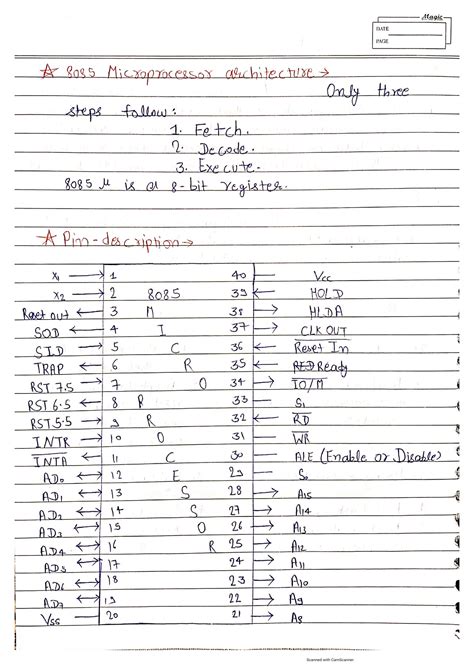 Magic
DATE
PAGE
☆ 8085 Microprocessor architecture →
Only three
steps follow:
1. Fetch.
2. Decode.
3. Execute.
8085 μ is a 8-bit register.
☆ Pin-description →
X1 → 1 40 — Vcc
X2 → 2 8085 39 ← HOLD
Reset out ← 3 M 38 → HLDA
SOD ← 4 I 37 → CLK OUT
SID → 5 C 36 ← Reset In
TRAP ← 6 R 35 ← Ready
RST 7.5 → 7 O 34 → IO/M
RST 6.5 ← 8 P R 33 — S1
RST 5.5 → 9 R 32 ← RD
INTR → 10 O 31 — WR
INTA ← 11 C 30 — ALE (Enable or Disable)
AD0 ↔ 12 E 29 — S0
AD1 ↔ 13 S 28 → A15
AD2 ↔ 14 S 27 → A14
AD3 ↔ 15 O 26 → A13
AD4 ↔ 16 R 25 → A12
AD5 ↔ 17 24 → A11
AD6 ↔ 18 23 → A10
AD7 ↔ 19 22 → A9
Vss — 20 21 → A8
Scanned with CamScanner